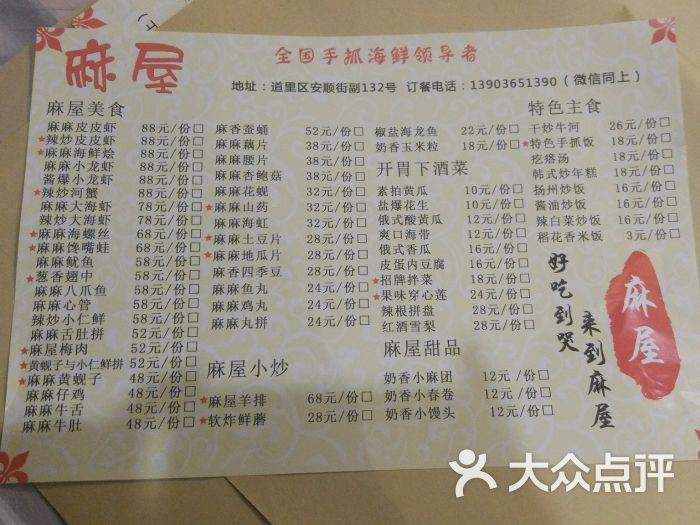 麻屋
全国手抓海鲜领导者
地址：道里区安顺街副132号 订餐电话：13903651390（微信同上）
麻屋美食
麻麻皮皮虾 88元/份□
★辣炒皮皮虾 88元/份□
★麻麻海鲜烩 88元/份□
麻麻小龙虾 88元/份□
酱爆小龙虾 88元/份□
★辣炒河蟹 88元/份□
麻麻大海虾 78元/份□
辣炒大海虾 78元/份□
★麻麻海螺丝 68元/份□
★麻麻馋嘴蛙 68元/份□
麻麻鱿鱼 58元/份□
★葱香翅中 58元/份□
麻麻八爪鱼 58元/份□
麻麻心管 58元/份□
辣炒小仁鲜 58元/份□
麻麻舌肚拼 52元/份□
★麻屋梅肉 52元/份□
★黄蚬子与小仁鲜拼 52元/份□
★麻麻黄蚬子 48元/份□
麻麻仔鸡 48元/份□
麻麻牛舌 48元/份□
麻麻牛肚 48元/份□
麻香蚕蛹 52元/份□
麻麻藕片 38元/份□
麻麻腰片 38元/份□
麻麻杏鲍菇 38元/份□
麻麻花蚬 32元/份□
★麻麻山药 32元/份□
麻麻海虹 32元/份□
★麻麻土豆片 28元/份□
★麻麻地瓜片 28元/份□
麻香四季豆 28元/份□
麻麻鱼丸 24元/份□
麻麻鸡丸 24元/份□
麻麻丸拼 24元/份□
麻屋小炒
★麻屋羊排 68元/份□
★软炸鲜蘑 28元/份□
椒盐海龙鱼 22元/份□
奶香玉米粒 18元/份□
开胃下酒菜
素拍黄瓜 10元/份□
盐爆花生 10元/份□
俄式酸黄瓜 12元/份□
爽口海带 12元/份□
俄式香瓜 16元/份□
皮蛋内豆腐 16元/份□
★招牌拌菜 18元/份□
★果味穿心莲 24元/份□
辣根拼盘 28元/份□
红酒雪梨 28元/份□
麻屋甜品
奶香小麻团 12元/份□
奶香小春卷 12元/份□
奶香小馒头 12元/份□
特色主食
干炒牛河 26元/份□
★特色手抓饭 18元/份□
疙瘩汤 18元/份□
韩式炒年糕 18元/份□
扬州炒饭 16元/份□
酱油炒饭 16元/份□
辣白菜炒饭 16元/份□
稻花香米饭 3元/份□
好吃到哭
来到麻屋
麻屋
大众点评